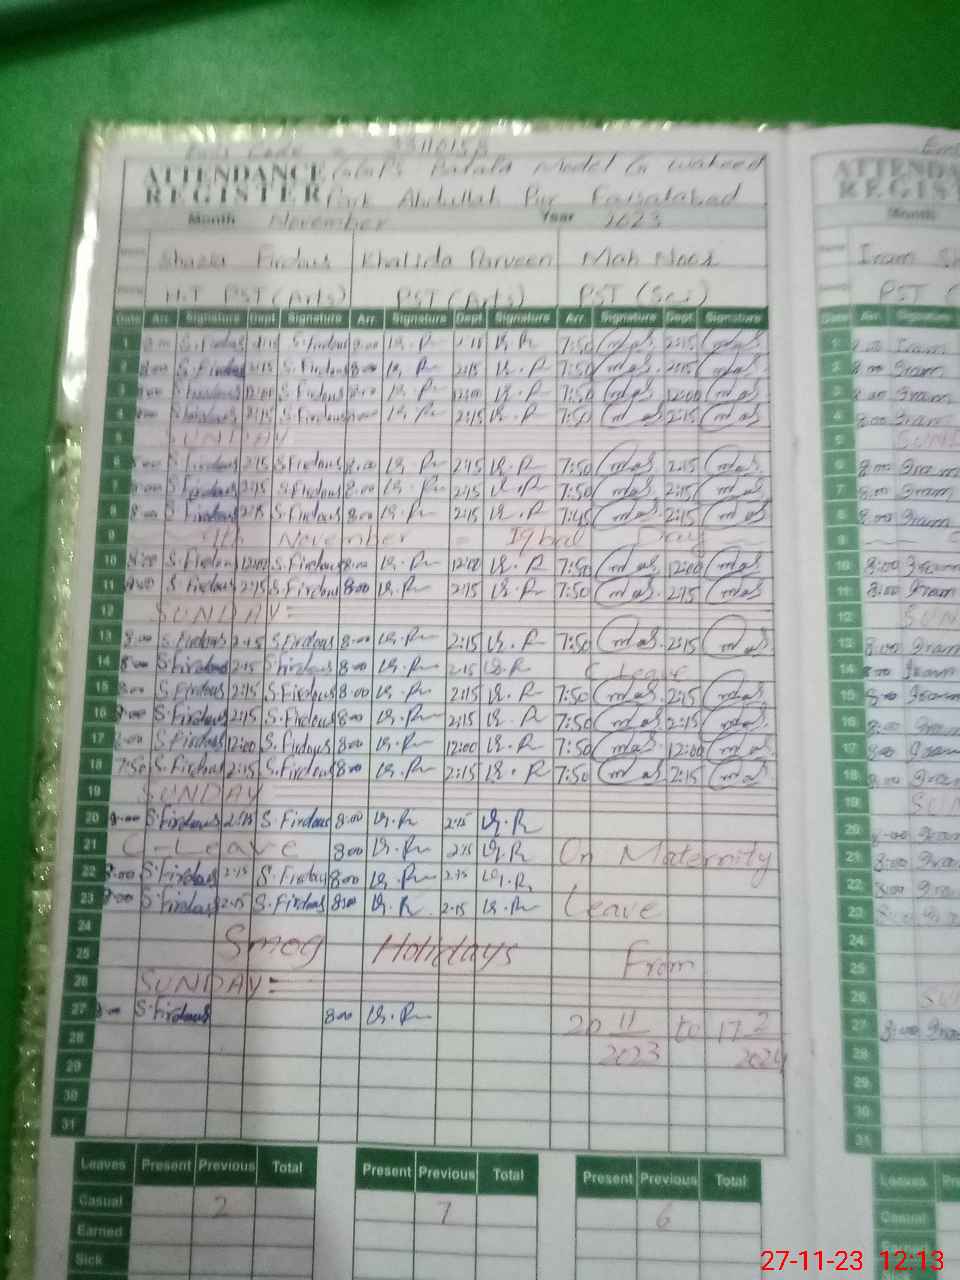 ATTENDANCE Model G Waheed
REGISTER Park Abdullah Pur Faisalabad
Month November Year 2023
Shazia Firdous Khalida Parveen Mah Noor Iram
PST (Arts) PST (Arts) PST (Sci) PST
Date Arr. Signature Dept. Signature Arr. Signature Dept. Signature Arr. Signature Dept. Signature Date Arr. Signature
1 8:00 S.Firdous 2:15 S.Firdous 8:00 2:15 7:50 2:15 1 8:00 Iram
2 8:00 S.Firdous 2:15 S.Firdous 8:00 2:15 7:50 2:15 2 8:00 Iram
3 8:00 S.Firdous 12:00 S.Firdous 8:00 12:00 7:50 12:00 3 8:00 Iram
4 8:00 S.Firdous 2:15 S.Firdous 8:00 2:15 7:50 2:15 4 8:00 Iram
5 SUNDAY 5
6 8:00 S.Firdous 2:15 S.Firdous 8:00 2:15 7:50 2:15 6 8:00 Iram
7 8:00 S.Firdous 2:15 S.Firdous 8:00 2:15 7:50 2:15 7 8:00 Iram
8 8:00 S.Firdous 2:15 S.Firdous 8:00 2:15 7:45 2:15 8 8:00 Iram
9 9th November - Iqbal Day 9
10 8:00 S.Firdous 12:00 S.Firdous 8:00 12:00 7:50 12:00 10 8:00 Iram
11 8:00 S.Firdous 2:15 S.Firdous 8:00 2:15 7:50 2:15 11 8:00 Iram
12 SUNDAY 12
13 8:00 S.Firdous 2:15 S.Firdous 8:00 2:15 7:50 2:15 13 8:00 Iram
14 8:00 S.Firdous 2:15 S.Firdous 8:00 2:15 C Leave 14 8:00 Iram
15 8:00 S.Firdous 2:15 S.Firdous 8:00 2:15 7:50 2:15 15 8:00 Iram
16 8:00 S.Firdous 2:15 S.Firdous 8:00 2:15 7:50 2:15 16 8:00 Iram
17 8:00 S.Firdous 12:00 S.Firdous 8:00 12:00 7:50 12:00 17 8:00 Iram
18 7:50 S.Firdous 2:15 S.Firdous 8:00 2:15 7:50 2:15 18 8:00 Iram
19 SUNDAY 19
20 8:00 S.Firdous 2:15 S.Firdous 8:00 2:15 20 8:00 Iram
21 C-Leave 8:00 2:15 On Maternity 21 8:00 Iram
22 8:00 S.Firdous 2:15 S.Firdous 8:00 2:15 22 8:00 Iram
23 8:00 S.Firdous 2:15 S.Firdous 8:00 2:15 Leave 23 8:00 Iram
24 24
25 Smog Holidays From 25
26 SUNDAY 26
27 8:00 S.Firdous 8:00 20 11 2023 to 17 2 2024 27 8:00 Iram
28 28
29 29
30 30
31 31
Leaves Present Previous Total Present Previous Total Present Previous Total Leaves
Casual 2 7 6 Casual
Earned
Sick
27-11-23 12:13